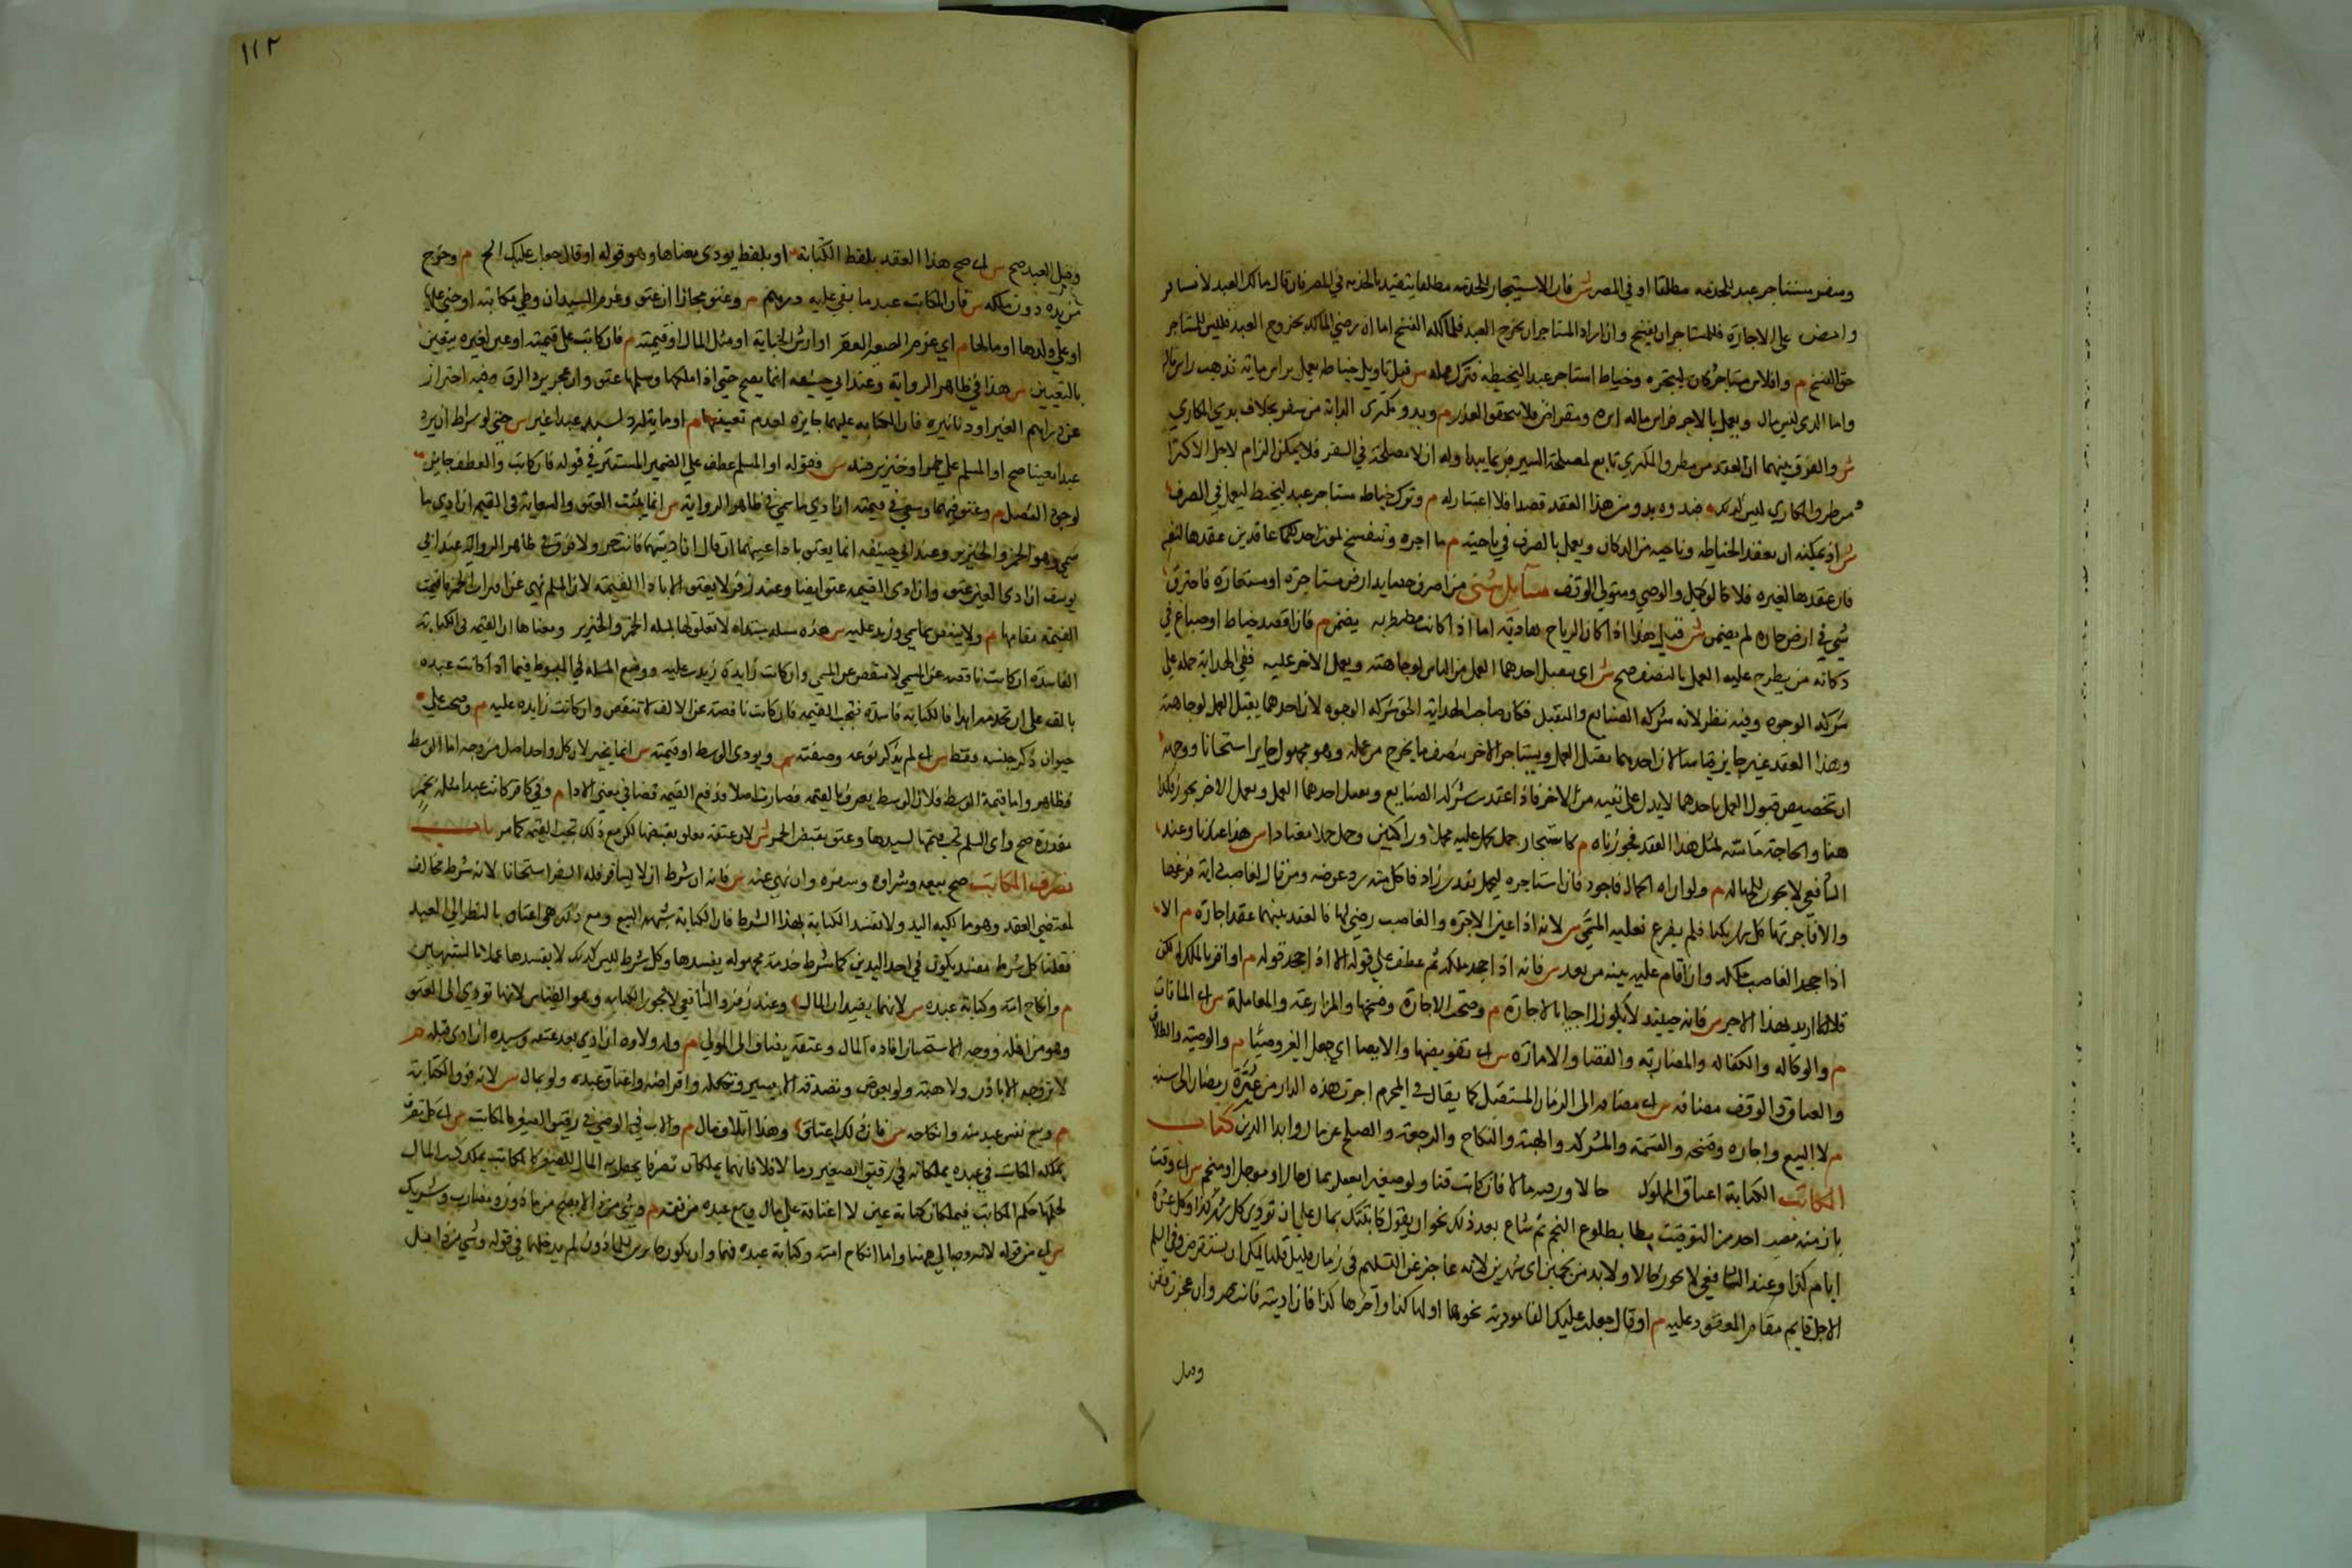 وسفر مستاجر عبد للخدمه مطلقا او في المصر ش فان الاستيجار للخدمه مطلقا يتقيد بالخدمه في المصر فان قال مالك العبد لا تسافر
وامض على الاجارة فللمستاجر ان يفسخ وان اراد المستاجر ان يخرج العبد فلمالكه الفسخ اما ان رضي المالك بخروج العبد فليس للمستاجر
حق الفسخ م وافلاس مستاجر دكان ليتجر وخياط استاجر عبدا ليخيط فترك عمله س قيل تاويله خياط يعمل براس ماله فذهب راس ماله
واما الذي ليس له مال ويعمل بالاجر فراس ماله ابره ومقراض فلا يتحقق العذر م وبدو مكتري الدابة من سفر بخلاف بدي المكاري
ش والفرق بينهما ان العقد من طرف المكتري تابع لمصلحة السير فربما يبدو له ان لا مصلحة في السفر فلا يمكن الزام لاجل الاكترا
ومن طرف المكاري ليس كذلك فبدوه بدو من هذا العقد قصدا فلا اعتبار له م وترك خياط مستاجر عبد ليخيط ليعمل في الصرف
ش اذ يمكنه ان يقعد الخياط في ناحيه من الدكان ويعمل بالصرف في ناحيته م ما اجره وتنفسخ بموت احد عاقدين عقدها لنفسه
فان عقدها لغيره فلا كالوكيل والوصي ومتولي الوقف مسائل شتى من احرق حصايد ارض مستاجرة او مستعارة فاحترق
شي في ارض جاره لم يضمن ش قيل هذا اذا كان الرياح هادية اما اذا كانت مضطربه يضمن م فان اقعد خياط او صباغ في
دكانه من يطرح عليه العمل بالنصف صح ش اي يتقبل احدهما العمل من الناس لوجاهته ويعمل الاخر عليه ففي الهدايه حمله على
شركة الوجوه وفيه نظر لانه شركة الصنايع والتقبل فكان صاحب الهدايه اطلق شركة الوجوه لان احدهما يقبل العمل لوجاهته
وهذا العقد غير جايز قياسا لان احدهما يتقبل العمل ويستاجر الاخر بنصف ما يخرج من عمله وهو مجهول جايز استحسانا ووجهه
ان تخصيص قبول العمل باحدهما لا يدل على نفيه من الاخر فاذا اعتقدت شركة الصنايع وتقبل احدهما العمل ويعمل الاخر يجوز فكذا
هنا والحاجة ماسة لمثل هذا العقد فجوزناه م كاستيجار جمل ليحمل عليه محملا وراكبين وحمل محملا معتادا س هذا عندنا وعند
الشافعي لا يجوز للجهاله م ولو اراه الجمال فاجود فان استاجره ليحمل قدر زاد فاكل منه رد عوضه ومن قال لغاصب داره فرغها
والا فاجرتها كل شهر بكذا فلم يفرغ فعليه المسمى س لانه اذا عين الاجره والغاصب رضي لها فالعقد بينهما عقد اجاره م الا
اذا جحد الغاصب ملكه وان اقام عليه بينه من بعد س فانه اذا جحد ملكه ثم عطف على قوله الا اذا جحد قوله م او اقر بالملك له لكن
قال لا اريد بهذا الاجر س فانه حينئذ لا يكون راضيا بالاجارة م وصحت الاجارة وفسخها والمزارعة والمعاملة س اي المساقات
م والوكاله والكفاله والمضاربه والقضا والاماره س اي تفويضها والايصا اي جعل الغير وصيا م والوصيه والطلاق
والعتاق والوقف مضافه س اي مضافه الى الزمان المستقبل كما يقال في المحرم اجرت هذه الدار من غرة رمضان الى سنه
م لا البيع واجازه وفسخه والقسمة والشركه والهبة والنكاح والرجعة والصلح عن مال وابرا الدين كتاب
المكاتب الكتابة اعتاق المملوك حالا ورقبه مالا فان كاتب قنا ولو صغيرا يعقل بمال حال او موجل او منجم س اي وقت
ايام كذا وعند الشافعي لا يجوز حالا ولا بد من نجمين اي شهرين لانه عاجز عن التسليم في زمان قليل قلنا يمكن ان يستقرض وفي السلم
الاجل قايم مقام المعقود عليه م او قال جعلت عليك الفا توديه نجوما اولها كذا وآخرها كذا فان اديته فانت حر وان عجزت فقن
وقبل
١١٢
وقبل العبد صح س اي صح هذا العقد بلفظ الكتابة م او بلفظ يودي معناها وهو قوله او قال جعلت عليك الخ م وخرج
من يده دون ملكه س فان المكاتب عبد ما بقي عليه درهم م وعتق مجانا ان عتق وغرم السيد ان وطي مكاتبته او جنى عليها
او على ولدها او مالها م اي غرم العقر او ارش الجناية او مثل المال او قيمته م فان كاتب على قيمته او عين لغيره يتعين
بالتعيين س هذا في ظاهر الرواية وعند ابي حنيفه انما يصح حتى اذا املكها وسلمها عتق وان عجز يرد الى الرق وفيه احتراز
عن دراهم الغير او دنانيره فان الكتابه عليهما جايزه لعدم تعينهما م او مايه ليرد سيده عبدا غير س حتى لو شرط ان يرد
عبدا معينا صح او المسلم على خمر او خنزير فسد س فقوله او المسلم عطف على الضمير المستتر في قوله فان كاتب والعطف جايز
لوجود الفصل م وعتق فيهما وسعى في قيمته ان ادى ما سمي في ظاهر الرواية س انما يثبت العتق والسعاية في القيمه ان ادى ما
سمي وهو الخمر والخنزير وعند ابي حنيفه انما يعتق باداء عينهما ان قال ان اديتهما فانت حر ولا فرق في ظاهر الرواية عند ابي
يوسف ان ادى العين عتق وان ادى القيمه عتق ايضا وعند زفر لا يعتق الا باداء القيمه لان المسلم نهي عن اقتراب الخمر فاقيمت
القيمه مقامها م ولا ينقص مما سمي وزيد عليه س هذه مسله مبتداه لا تعلق لها بمسله الخمر والخنزير ومعناها ان القيمه في الكتابة
الفاسدة ان كانت ناقصه عن المسمى لا تنقص عن المسمى وان كانت زايدة زيدت عليه ووضع المسله في المبسوط فيما اذا كاتب عبده
بالف على ان يخدمه ابدا فالكتابه فاسده فتجب القيمه فان كانت ناقصة عن الالف لا تنقص وان كانت زايده عليه م وصحت على
حيوان ذكر جنسه فقط س اي لم يذكر نوعه وصفته م ويودي الوسط او قيمته س انما يخير لان كل واحد اصل من وجه اما الوسط
فظاهر واما قيمة الوسط فلان الوسط يعرف بالقيمه فصارت اصلا فدفع القيمه قضا في معنى الادا م وفي كافر كاتب عبدا مثله بخمر
مقدرة صح واي اسلم تجب قيمتها لسيدها وعتق بقبض الخمر ش لان عتقه معلق بقبضها لكن مع ذلك تجب القيمه كما مر باب
تصرف المكاتب صح بيعه وشراوه وسفره وان نهي عنه س فانه ان شرط ان لا يسافر فله السفر استحسانا لانه شرط مخالف
لمقتضى العقد وهو مالكيه اليد ولا تفسد الكتابة بهذا الشرط فان الكتابة تشبه البيع ومع ذلك هي اعتاق بالنظر الى العبد
فقلنا كل شرط مفسد يكون في احد البدلين كما شرط خدمة مجهوله يفسدها وكل شرط ليس كذلك لا يفسدها عملا بالشبهين
م وانكاح امته وكتابة عبده س لانهما يفيدان المال وعند زفر والشافعي لا يجوز الكتابه وهو القياس لانها تودي الى العتق
وهو من اهله ووجه الاستحسان افاده المال وعتقه يضاف الى المولى م وله ولاوه ان ادى بعد عتقه وسيده ان ادى قبله
لا تزوجه الا باذن ولا هبته ولو بعوض وتصدقه الا بيسير وتكفله واقراضه واعتاق عبده ولو بمال س لانه فوق الكتابة
م وبيع نفس عبد منه وانكاحه س فان ذلك اعتاق وهذا اتلاف مال م والاب والوصي في رقيق الصغير كالمكاتب س اي كل تصرف
يملكه المكاتب في عبده يملكانه في رقيق الصغير وما لا فلا فانهما يملكان تصرفا يحصل به المال للصغير كالمكاتب يملك كسب المال
فحكمهما حكم المكاتب فيملكان كتابة عبد لا اعتاقه على مال وبيع عبده من نفسه م وشي من ذا لا يصح من ماذون ومضارب وشريك